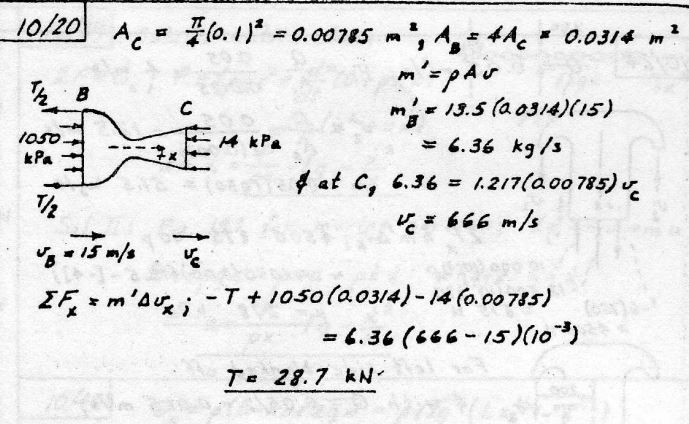 10/20
A_C = π/4 (0.1)² = 0.00785 m², A_B = 4A_C = 0.0314 m²
m' = ρAυ
m'_B = 13.5(0.0314)(15)
= 6.36 kg/s
& at C, 6.36 = 1.217(0.00785)υ_C
υ_C = 666 m/s
T/2
B
C
1050
kPa
+x
14 kPa
T/2
υ_B = 15 m/s
υ_C
ΣF_x = m'Δυ_x; -T + 1050(0.0314) - 14(0.00785)
= 6.36(666 - 15)(10⁻³)
T = 28.7 kN